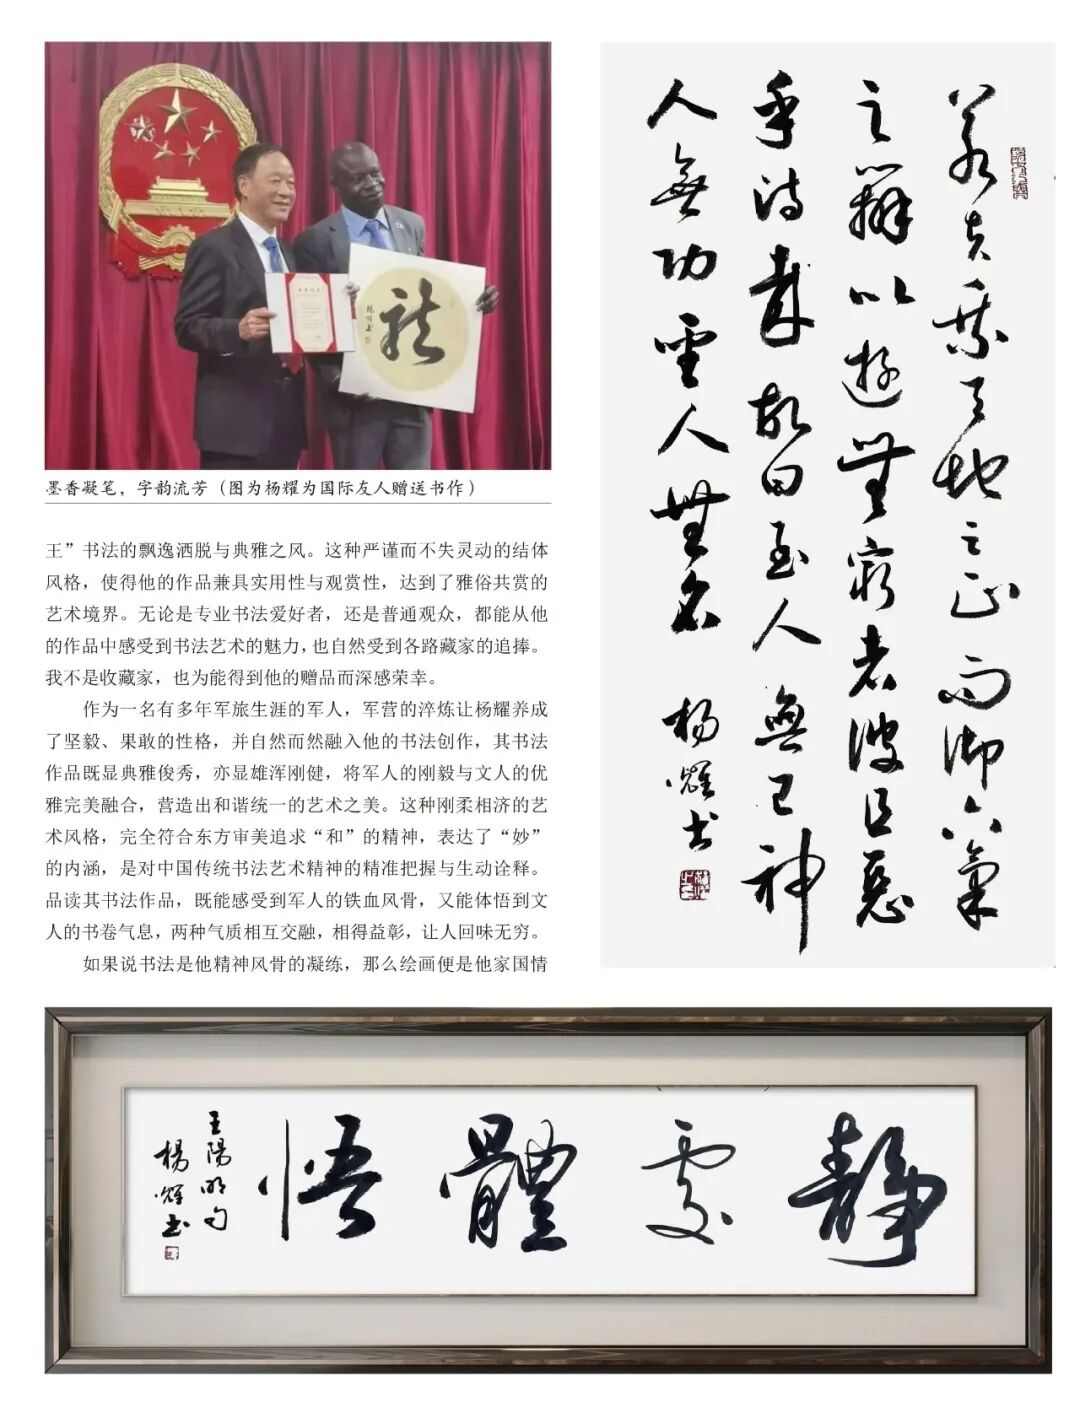 龍
楊耀書
墨香凝笔，字韵流芳（图为杨耀为国际友人赠送书作）
王”书法的飘逸洒脱与典雅之风。这种严谨而不失灵动的结体
风格，使得他的作品兼具实用性与观赏性，达到了雅俗共赏的
艺术境界。无论是专业书法爱好者，还是普通观众，都能从他
的作品中感受到书法艺术的魅力，也自然受到各路藏家的追捧。
我不是收藏家，也为能得到他的赠品而深感荣幸。
作为一名有多年军旅生涯的军人，军营的淬炼让杨耀养成
了坚毅、果敢的性格，并自然而然融入他的书法创作，其书法
作品既显典雅俊秀，亦显雄浑刚健，将军人的刚毅与文人的优
雅完美融合，营造出和谐统一的艺术之美。这种刚柔相济的艺
术风格，完全符合东方审美追求“和”的精神，表达了“妙”
的内涵，是对中国传统书法艺术精神的精准把握与生动诠释。
品读其书法作品，既能感受到军人的铁血风骨，又能体悟到文
人的书卷气息，两种气质相互交融，相得益彰，让人回味无穷。
如果说书法是他精神风骨的凝练，那么绘画便是他家国情
若夫乘天地之正而御六氣
之辯以遊無窮者彼且惡
乎待哉故曰至人無己神
人無功聖人無名 楊耀書
靜處體悟
王陽明句
楊耀書